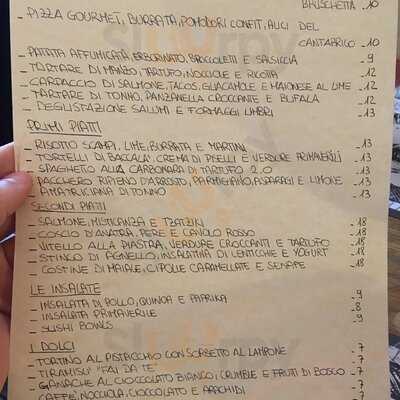 BRUSCHETTA _ 10
_ PIZZA GOURMET, BURRATA, POMODORI CONFIT, ALICI DEL
CANTABRICO _ 10
_ PATATA AFFUMICATA, ERBORINATO, BROCCOLETTI E SALSICCIA _ 9
_ TARTARE DI MANZO, TARTUFO, NOCCIOLE E RICOTTA _ 12
_ CARPACCIO DI SALMONE, TACOS, GUACAMOLE E MAIONESE AL LIME _ 12
_ TARTARE DI TONNO, PANZANELLA CROCCANTE E BUFALA _ 12
_ DEGUSTAZIONE SALUMI E FORMAGGI UMBRI _ 13
PRIMI PIATTI
_ RISOTTO SCAMPI, LIME, BURRATA E MARTINI _ 13
_ TORTELLI DI BACCALA' CREMA DI PISELLI E VERDURE PRIMAVERILI _ 13
_ SPAGHETTO ALLA CARBONARA DI TARTUFO 2.0 _ 13
_ PACCHERO RIPIENO D'ARROSTO, PARMIGIANO, ASPARAGI E LIMONE _ 13
_ AMATRICIANA DI TONNO _ 13
SECONDI PIATTI
_ SALMONE, MISTICANZA E TZATZIKI _ 18
_ COSCIO D'ANATRA, PERE E CAVOLO ROSSO _ 18
_ VITELLO ALLA PIASTRA, VERDURE CROCCANTI E TARTUFO _ 18
_ STINCO DI AGNELLO, INSALATINA DI LENTICCHIE E YOGURT _ 18
_ COSTINE DI MAIALE, CIPOLLE CARAMELLATE E SENAPE _ 18
LE INSALATE
_ INSALATA DI POLLO, QUINOA E PAPRIKA _ 9
_ INSALATA PRIMAVERILE _ 8
_ SUSHI BOWLS _ 9
I DOLCI
_ TORTINO AL PISTACCHIO CON SORBETTO AL LAMPONE _ 7
_ TIRAMISU' "FAI DA TE" _ 7
_ GANACHE AL CIOCCOLATO BIANCO, CRUMBLE E FRUTTI DI BOSCO _ 7
_ CAFFE', NOCCIOLA, CIOCCOLATO E ARACHIDI _ 7